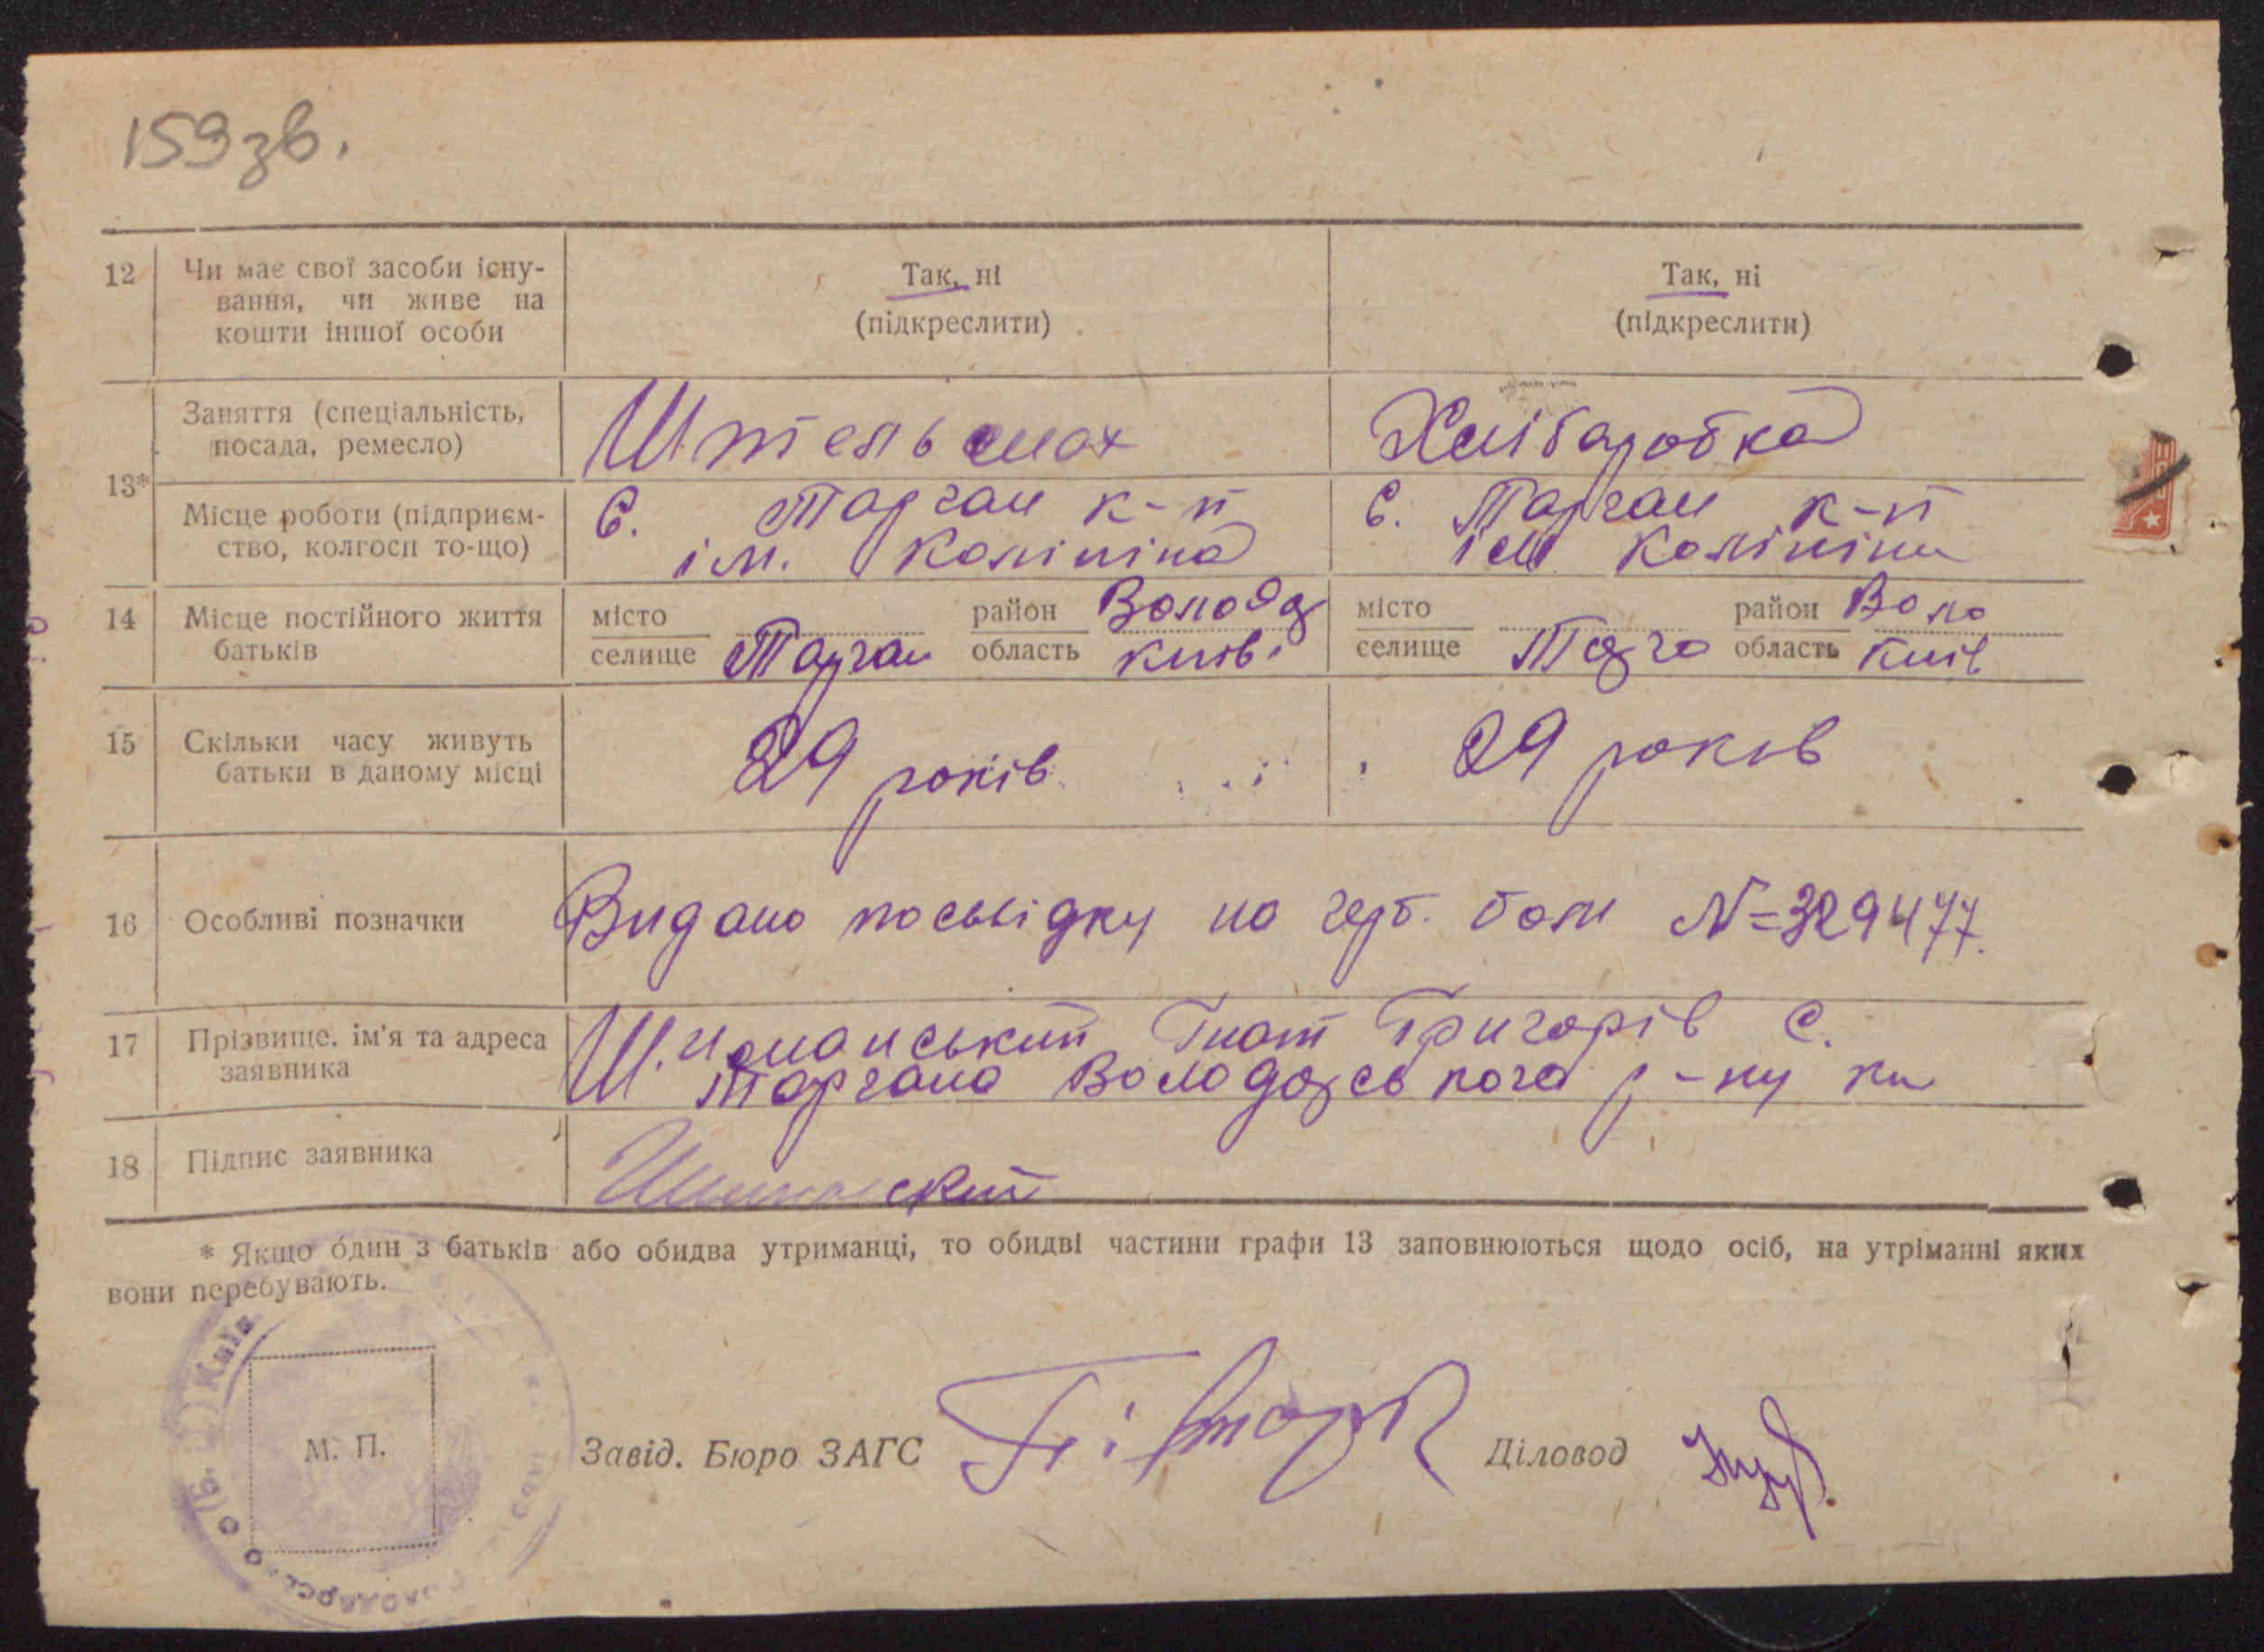 159 зв.
12 Чи має свої засоби існу-
вання, чи живе на
кошти іншої особи
Так, ні
(підкреслити)
Так, ні
(підкреслити)
13*
Заняття (спеціальність,
посада, ремесло)
Штельмах
Хліборобка
Місце роботи (підприєм-
ство, колгосп то-що)
С. Тарган к-п
ім. Калініна
С. Тарган к-п
ім Калініна
14 Місце постійного життя
батьків
місто
селище Тарган
район Володар
область Київ.
місто
селище Тарга
район Воло
область Київ
15 Скільки часу живуть
батьки в даному місці
29 років
29 років
16 Особливі позначки
Видано посвідку на герб. бози N=329477.
17 Прізвище, ім'я та адреса
заявника
Шиманський Гнат Григорів С.
Таргана Володарського р-ну ки
18 Підпис заявника
* Якщо один з батьків або обидва утриманці, то обидві частини графи 13 заповнюються щодо осіб, на утріманні яких
вони перебувають.
Київ
М. П.
Завід. Бюро ЗАГС
Діловод